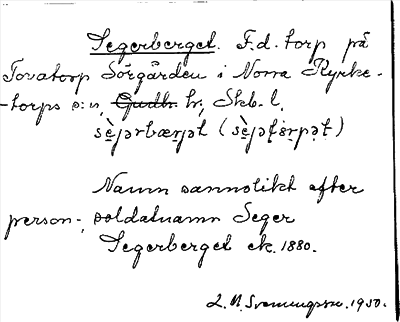 Segerberget. F.d. torp på
Tovatorp Sörgården i Norra Kyrke-
-torps s:n, Gudh. hr, Skb. l.
sèjərbærjət (sèjəfərpət)
Namn sannolikt efter
person-, soldatnamn Seger
Segerberget ek. 1880.
1950.